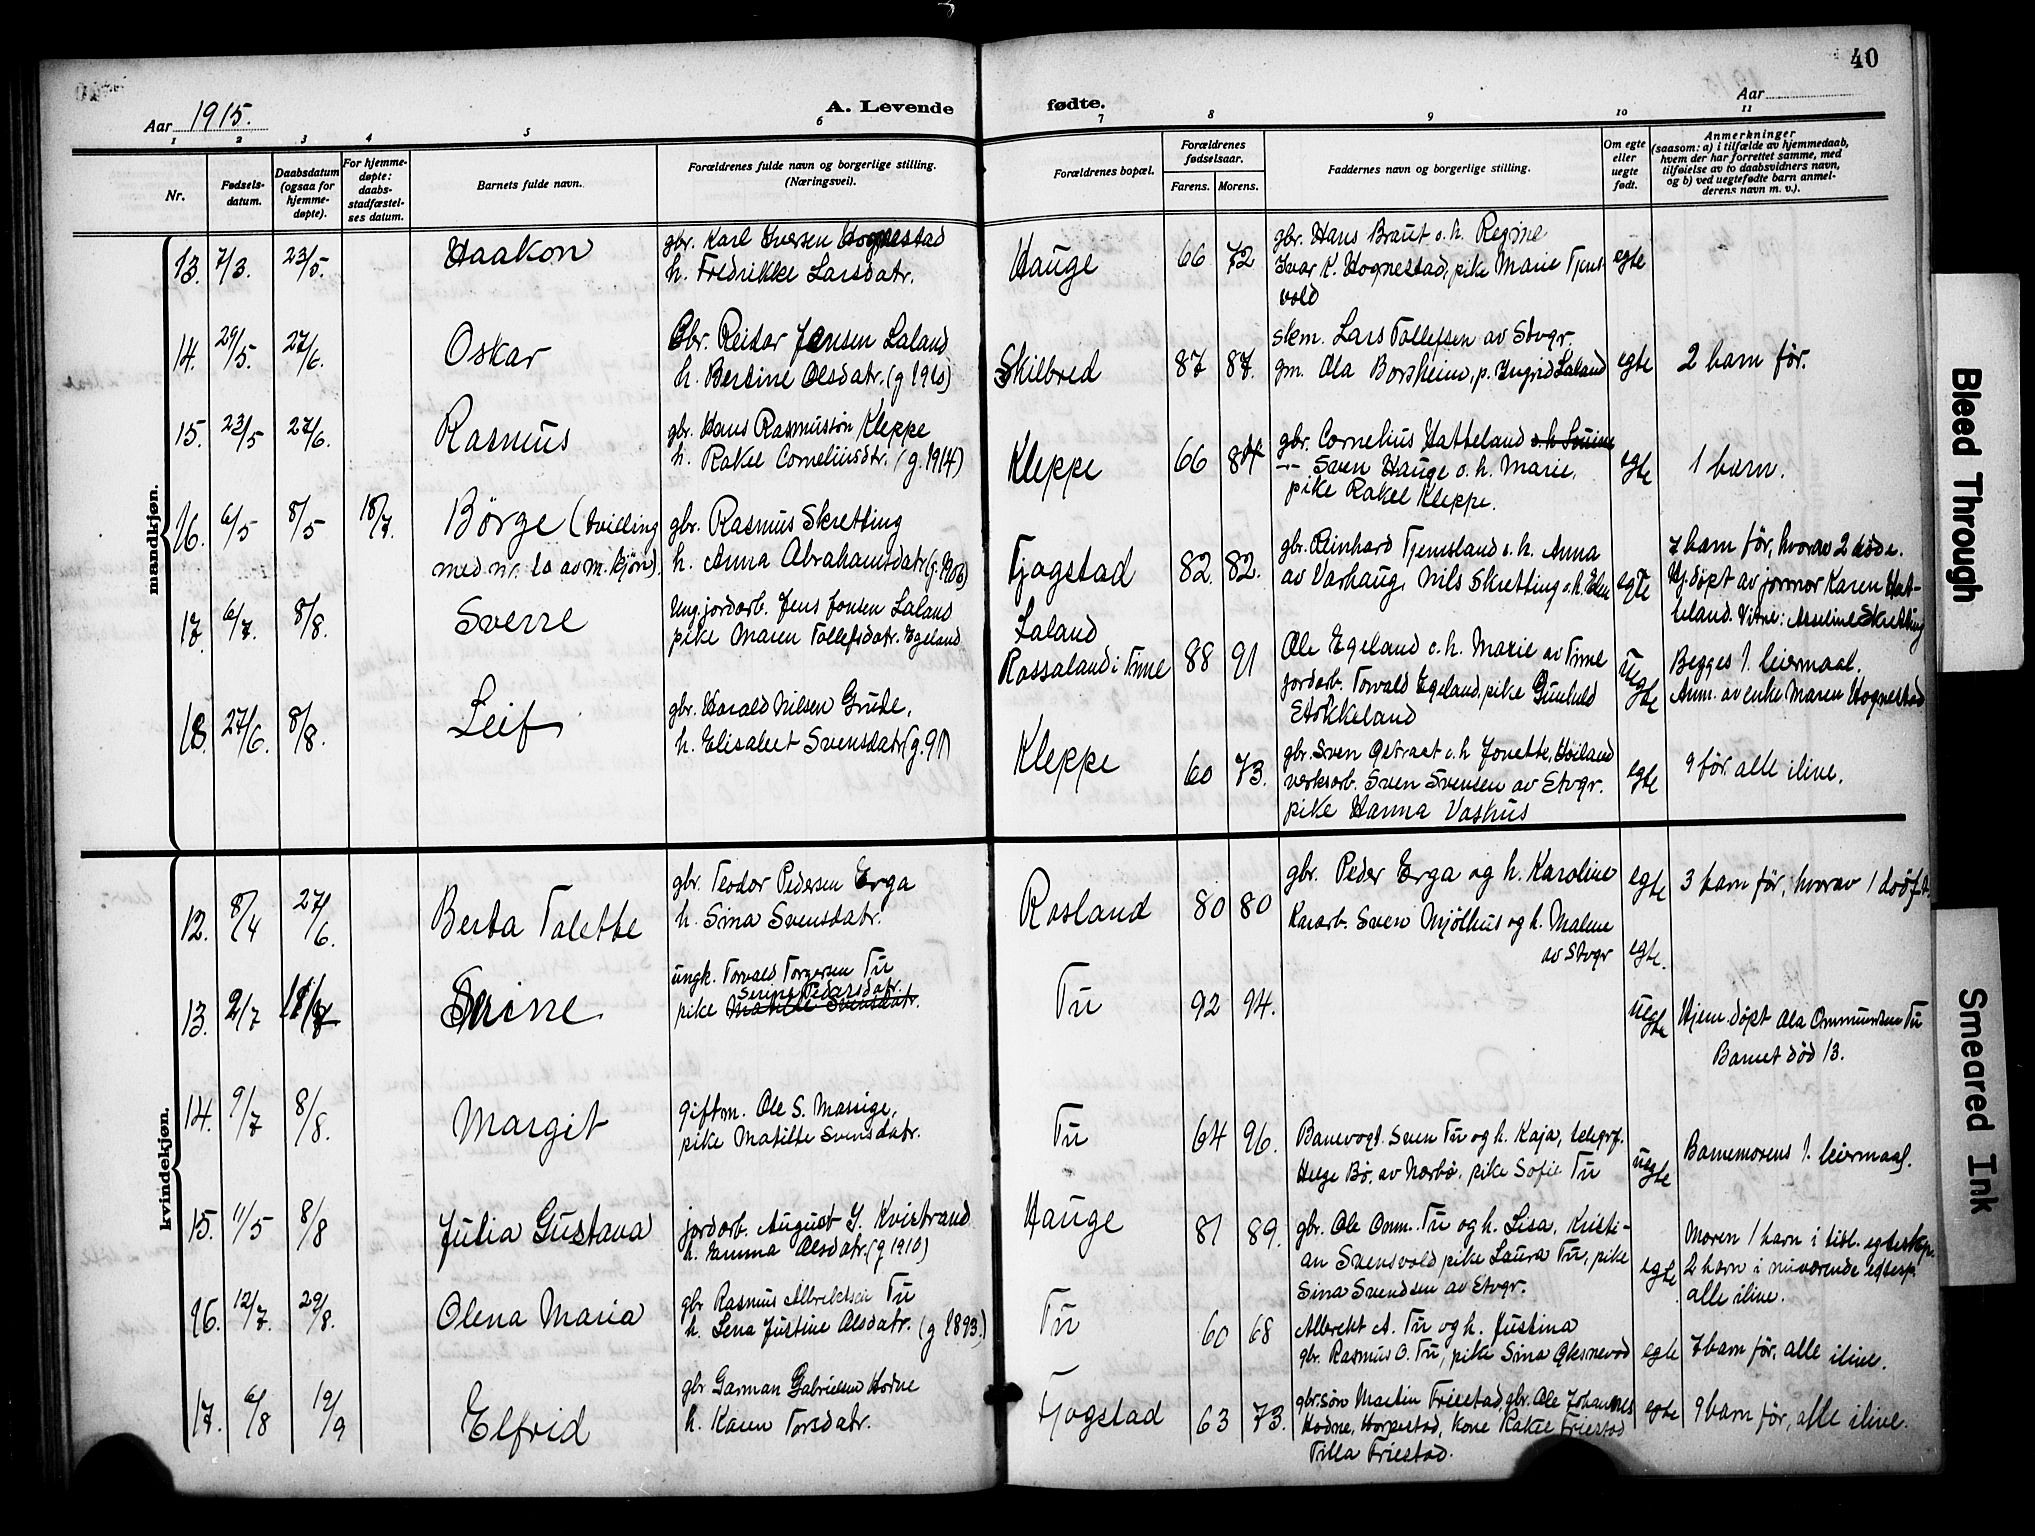 40
Aar 1915.
A. Levende fødte.
Aar
1 2 3 4 5 6 7 8 9 10 11
Nr.
Fødsels-
datum.
Daabsdatum
(ogsaa for
hjemme-
døpte).
For hjemme-
døpte:
daabs-
stadfæstel-
ses datum.
Barnets fulde navn.
Forældrenes fulde navn og borgerlige stilling.
(Næringsvei).
Forældrenes bopæl.
Forældrenes
fødselsaar.
Farens. Morens.
Faddernes navn og borgerlige stilling.
Om egte
eller
uegte
født.
Anmerkninger
(saasom: a) i tilfælde av hjemmedaab,
hvem der har forrettet samme, med
tilføielse av to daabsvidners navn,
og b) ved uegtefødte barn anmel-
derens navn m. v.).
mandkjøn.
13. 7/3. 23/5. Haakon
gbr. Karl Iversen Hognestad
h. Fredrikke Larsdatr.
Hauge 66 72
gbr. Hans Braut o. h. Regine
Ivar K. Hognestad, pike Marie Tjens-
vold
egte
14. 29/5 27/6. Oskar
Gbr. Reidar Jonsen Laland
h. Bertine Olsdatr. (g 1910)
Skilbred 87 87.
skm. Lars Tollefsen av Stvgr.
gm. Ola Borsheim, p. Ingrid Laland
egte 2 barn før.
15. 23/5 27/6. Rasmus
gbr. Hans Rasmusson Kleppe
h. Rakel Corneliusdtr. (g. 1914)
Kleppe 66 84
gbr. Cornelius Hatteland
-"- Sven Hauge o. h. Marie,
pike Rakel Kleppe.
egte 1 barn.
16. 6/5 8/5 18/7. Børge (tvilling
med nr. 10 av m. kjøn).
gbr. Rasmus Skretting
h. Anna Abrahamsdatr. (g. 1906)
Tjøgstad 82. 82.
gbr. Reinhard Tjemsland o. h. Anna
av Varhaug, Nils Skretting o. h. Elen
egte
7 barn før, hvorav 2 døde.
Hj.døpt av jormor Karen Hat-
teland. Vitne: Asseline Skretting
17. 6/7. 8/8. Sverre
Ung. jordarb. Jens Jonsen Laland
pike Maren Tollefsdatr. Egeland
Laland
Rossaland i Time 88 91
Ole Egeland o. h. Marie av Time
jordarb. Torvald Egeland, pike Gunhild
Stokkeland
uegte
Begges 1. leiermaal.
Anm. av enke Maren Hognestad
18. 27/6. 8/8. Leif
gbr. Harald Nilsen Grude,
h. Elisabet Svensdatr. (g. 91)
Kleppe 60 73.
gbr. Sven Østraat o. h. Jonette, Høiland
verksarb. Sven Svensen av Stvgr.
pike Hanna Vashus
egte 9 før alle ilive.
kvindekjøn.
12. 8/4 27/6. Berta Talette
gbr. Teodor Pedersen Erga
h. Sina Svensdatr.
Rosland 80 80
gbr. Peder Erga og h. Karoline
Kararb. Sven Mjølhus og h. Malene
av Stvgr
egte
egte.
3 barn før, hvorav 1 dødf.
13. 2/7 Serine
ungk. Torvald Torgersen Tu
Serine Pedersdatr.
pike Matilde Svensdatr.
Tu 92 94.
uegte
Hjemdøpt Ola Ommundsen Tu
Barnet død 13.
14. 9/7 8/8. Margit
giftm. Ole S. Massige,
pike Matilde Svensdatr.
Tu 64 96.
Banevogt. Sven Tu og h. Kaja, telegrf.
Helge Bø, av Nærbø, pike Sofie Tu
uegte Barnemorens 1. leiermaal.
15. 11/5 8/8 Julia Gustava
jordarb. August J. Kvistrand
h. Emma Olsdatr. (g 1910)
Hauge 81 89.
gbr. Ole Omm. Tu og h. Lisa, Kristi-
an Svensvold pike Laura Tu, pike
Sina Svendsen av Stvgr.
egte
Moren 1 barn i tidl. egteskp.
2 barn i nuværende egtesp.
alle ilive.
16. 12/7. 29/8. Olena Maria
gbr Rasmus Albrektsen Tu
h. Lena Justine Olsdatr. (g 1893.)
Tu 60 68
Albrekt A. Tu og h. Justina
gbr. Rasmus O. Tu, pike Sina Øksnevad
egte 7 barn før, alle ilive.
17. 6/8 12/9 Elfrid
gbr Garman Gabrielsen Hodne
h. Karen Torsdatr.
Tjøgstad 63 73.
gbr.søn Martin Friestad, gbr. Ole Johannes
Hodne, Horpestad, Kone Rakel Friestad
Tilla Friestad.
egte 9 barn før, alle ilive.
Bleed Through
Smeared Ink